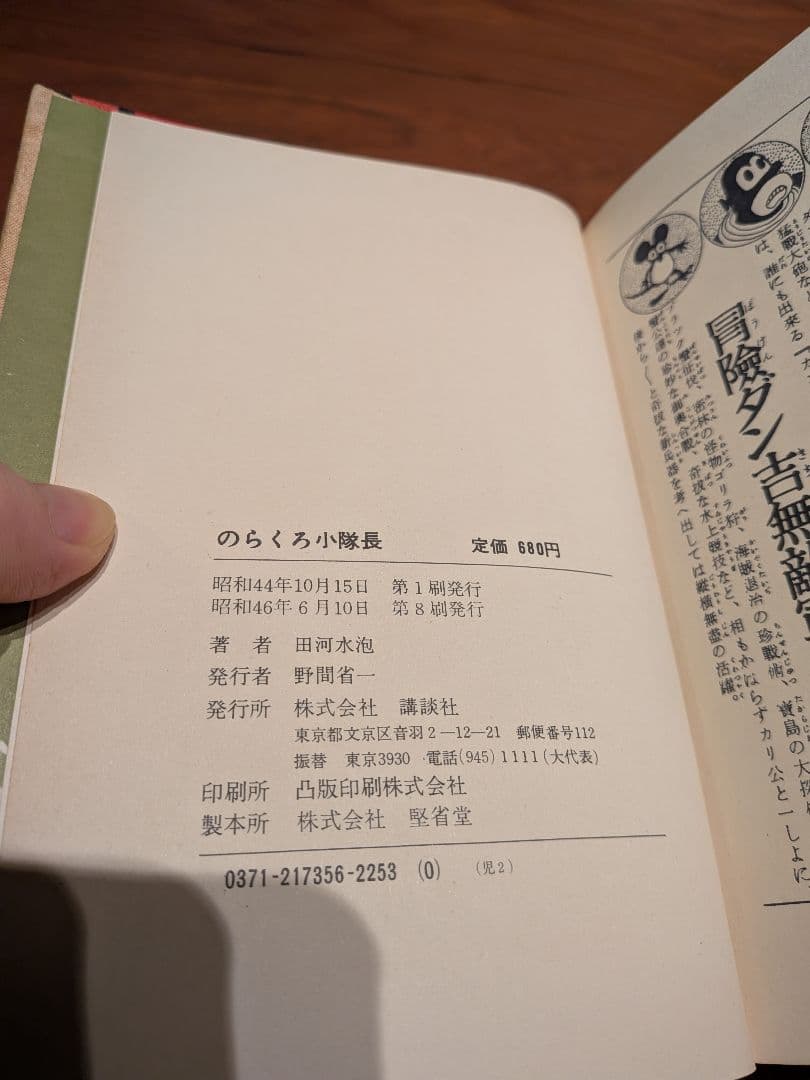 のらくろ小隊長 定価 680円
昭和44年10月15日 第1刷発行
昭和46年6月10日 第8刷発行
著者 田河水泡
発行者 野間省一
発行所 株式会社 講談社
東京都文京区音羽2―12―21 郵便番号112
振替 東京3930 ・電話(945)1111(大代表)
印刷所 凸版印刷株式会社
製本所 株式会社 堅省堂
0371-217356-2253 (0) (児2)
猛戰大砲な
は、誰にも出来る
冒險ダン吉無敵
密林の怪物ゴリラ狩、海賊退治の珍戰術、寶島の大探
奇拔な水上競技など、相もかはらずカリ公と一しよに
奇拔な新兵器を考へ出しては縱横無盡の活躍。